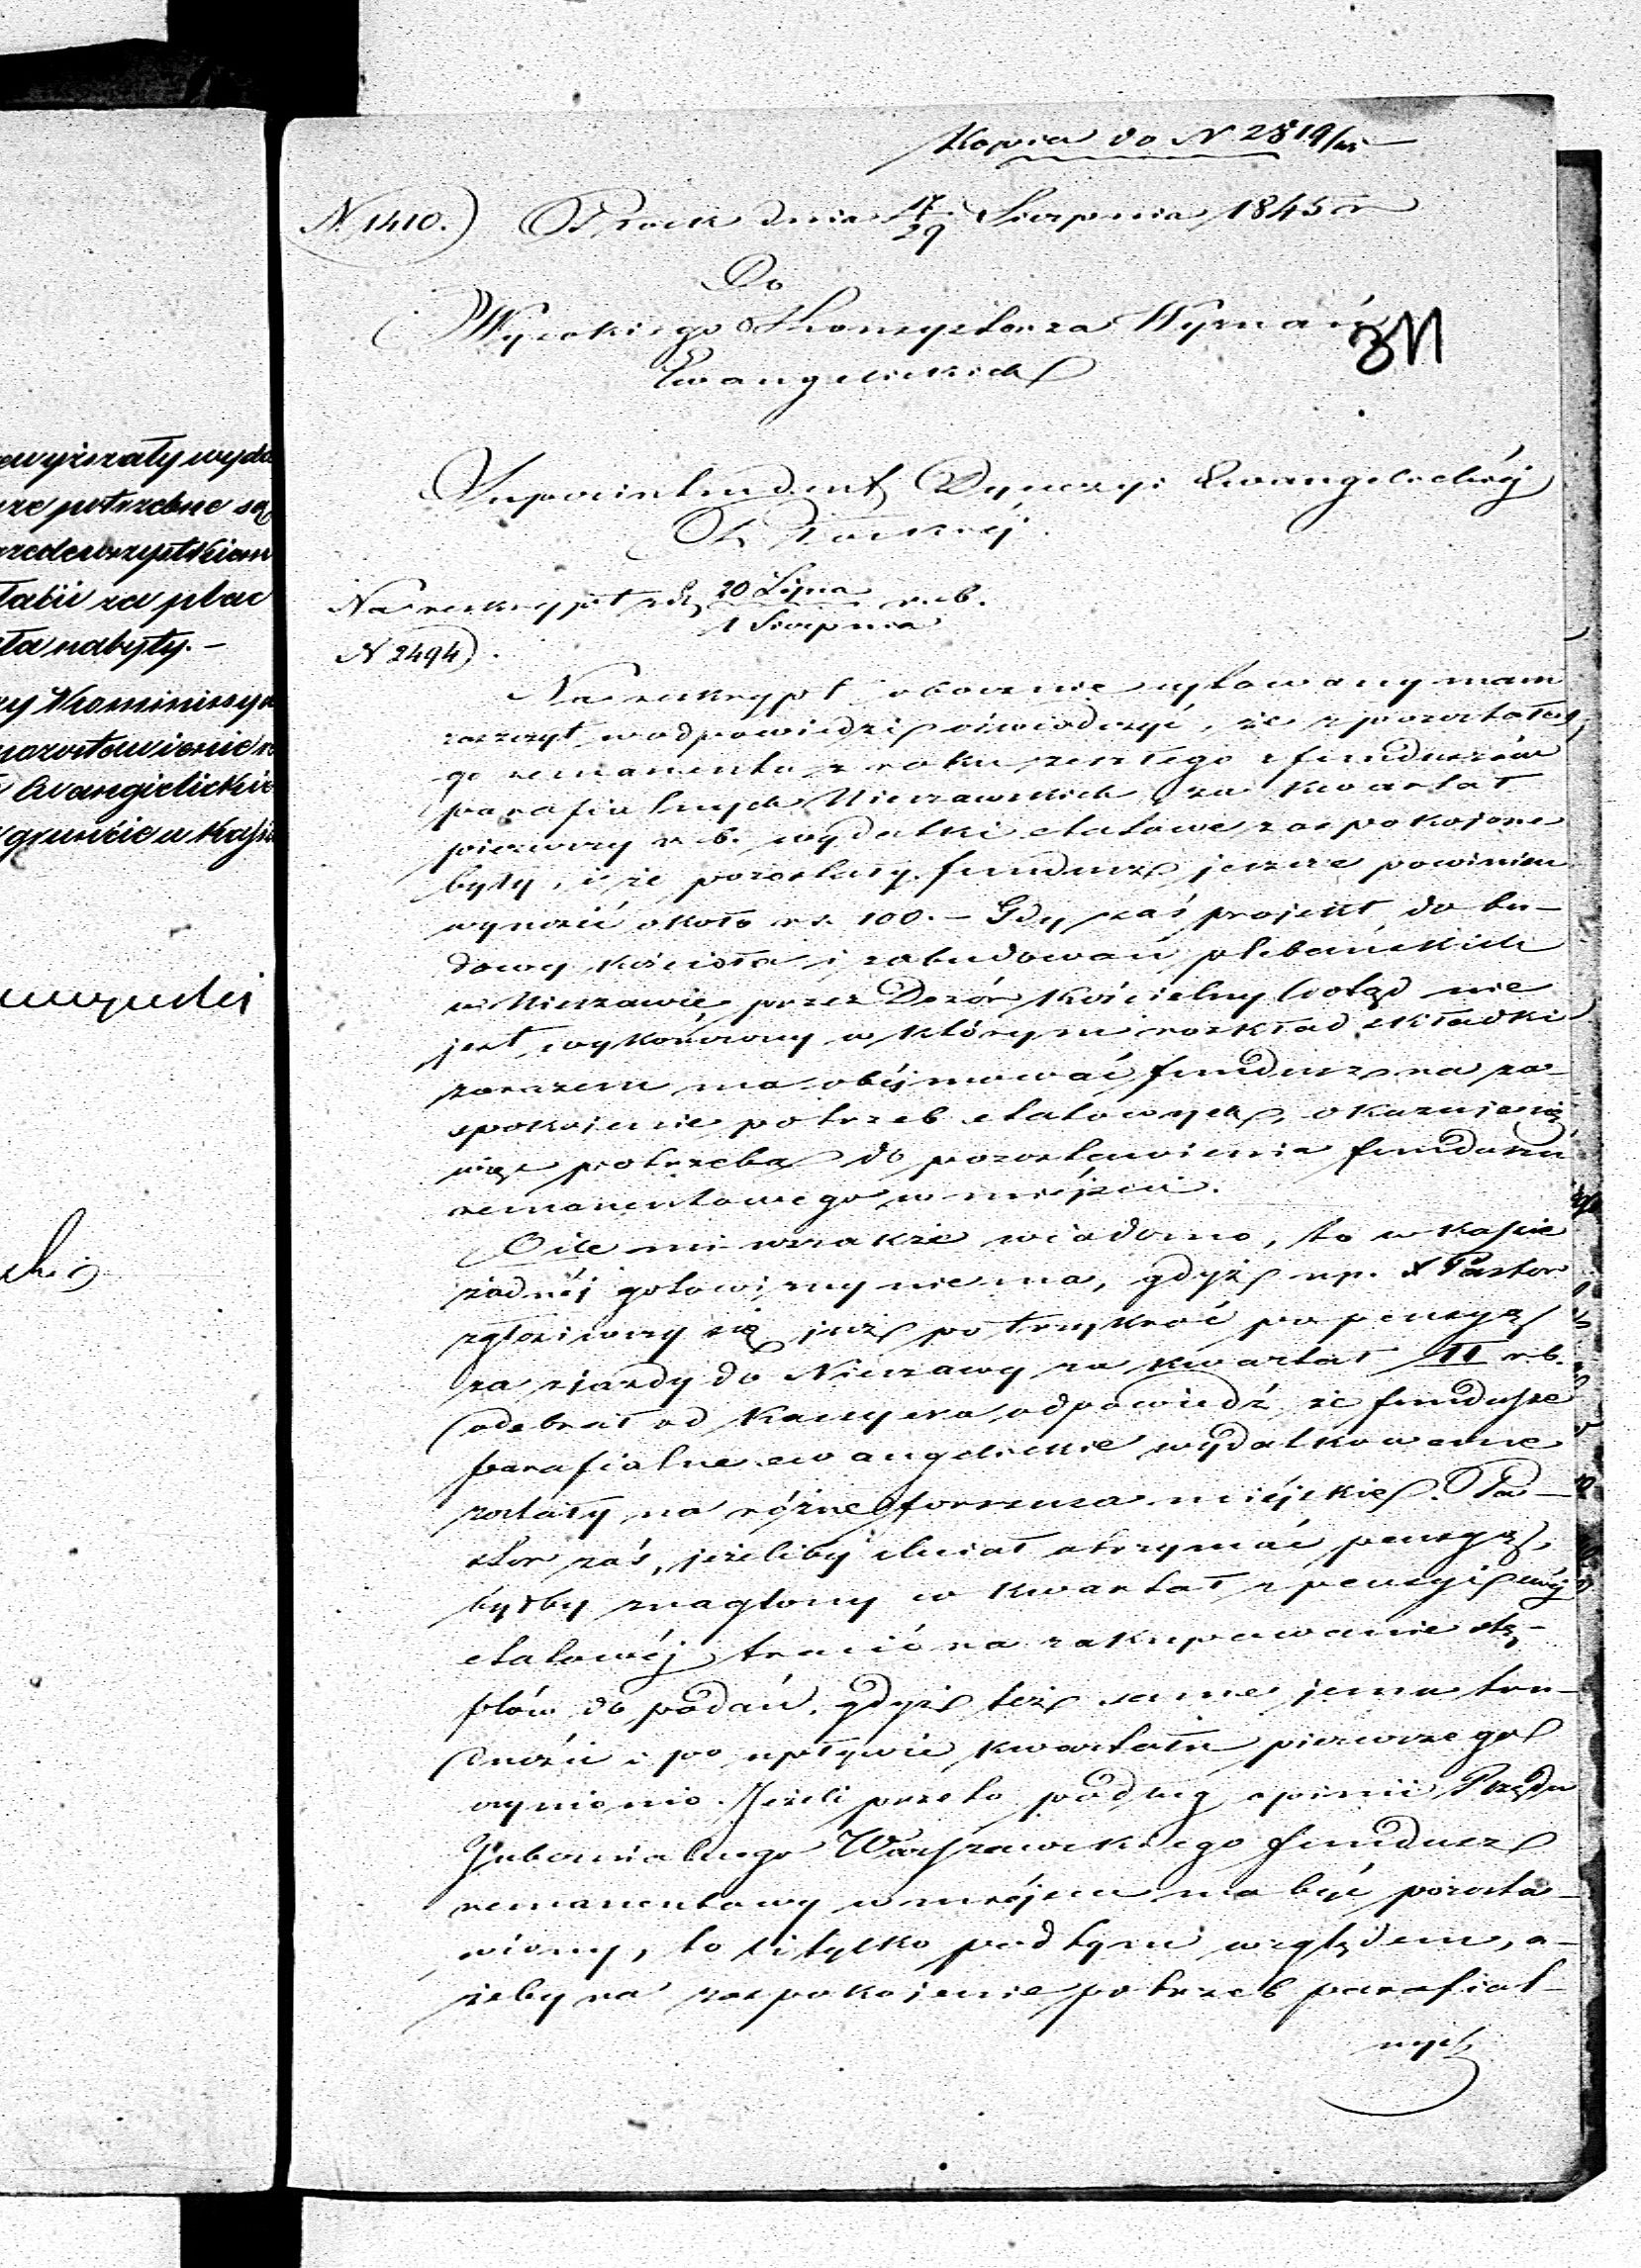 ewyższały wyda
potrzebne są
rzedewszystkiem
za plac
ła nabyty.-
Kommissya
pozostawienie
Ewangielickie
gruńcie w Kassie
Kopia do N 2819/
N 1410.) Płock dnia 17/29 Sierpnia 1845 r
Do
Wysokiego Konsystorza Wyznań
Ewangelickich
311
Superintendent Dyecezyi Ewangelickiéj
Płockiéj.
Na reskrypt z d. 20 Lipca / 1 Sierpnia r. b.
N 2494).
Na reskrypt obocznie cytowany mam
zaszczyt w odpowiedzi oświadczyć, że z pozostałe
go remanentu z roku zeszłego z funduszów
parafialnych Nieszawskich za kwartał
pierwszy r. b. wydatki etatowe zaspokojone
były, i że pozostały fundusz jeszcze powinien
wynosić około rs. 100.- Gdy zaś projekt do bu-
dowy kościoła i zabudowań plebańskich
w Nieszawie, przez Dozór Kościelny dotąd nie
jest wykończony w którym rozkład składki
zarazem ma obéjmować fundusz na za-
spokojenie potrzeb etatowych, okazuje się
więc potrzeba do pozostawienia funduszu
remanentowego w miéjscu.
O ile mi wszakże wiadomo, to w kassie
żadnéj gotowizny nie ma, gdyż np. X Pastor
zgłosiwszy się już po trzykroć po pensyę
za zjazdy do Nieszawy za kwartał II r. b.
odebrał od Kassyera odpowiedź że fundusze
parafialne ewangelickie wydatkowane
zostały na różne forszusa miéjskie. Pa-
stor zaś, jeżeliby chciał otrzymać pensyę,
byłby znaglony w kwartał z pensyi swéj
etatowéj tracić na zakupowanie stę-
plów do podań, gdyż też same jemu tru-
dności i po upływie kwartału pierwszego
czyniono. Jeżeli przeto podług opinii Rządu
Gubernialnego Warszawskiego fundusz
remanentowy w miéjscu ma być pozosta-
wiony, to li tylko pod tym względem, a-
żeby na zaspokojenie potrzeb parafial-
nych